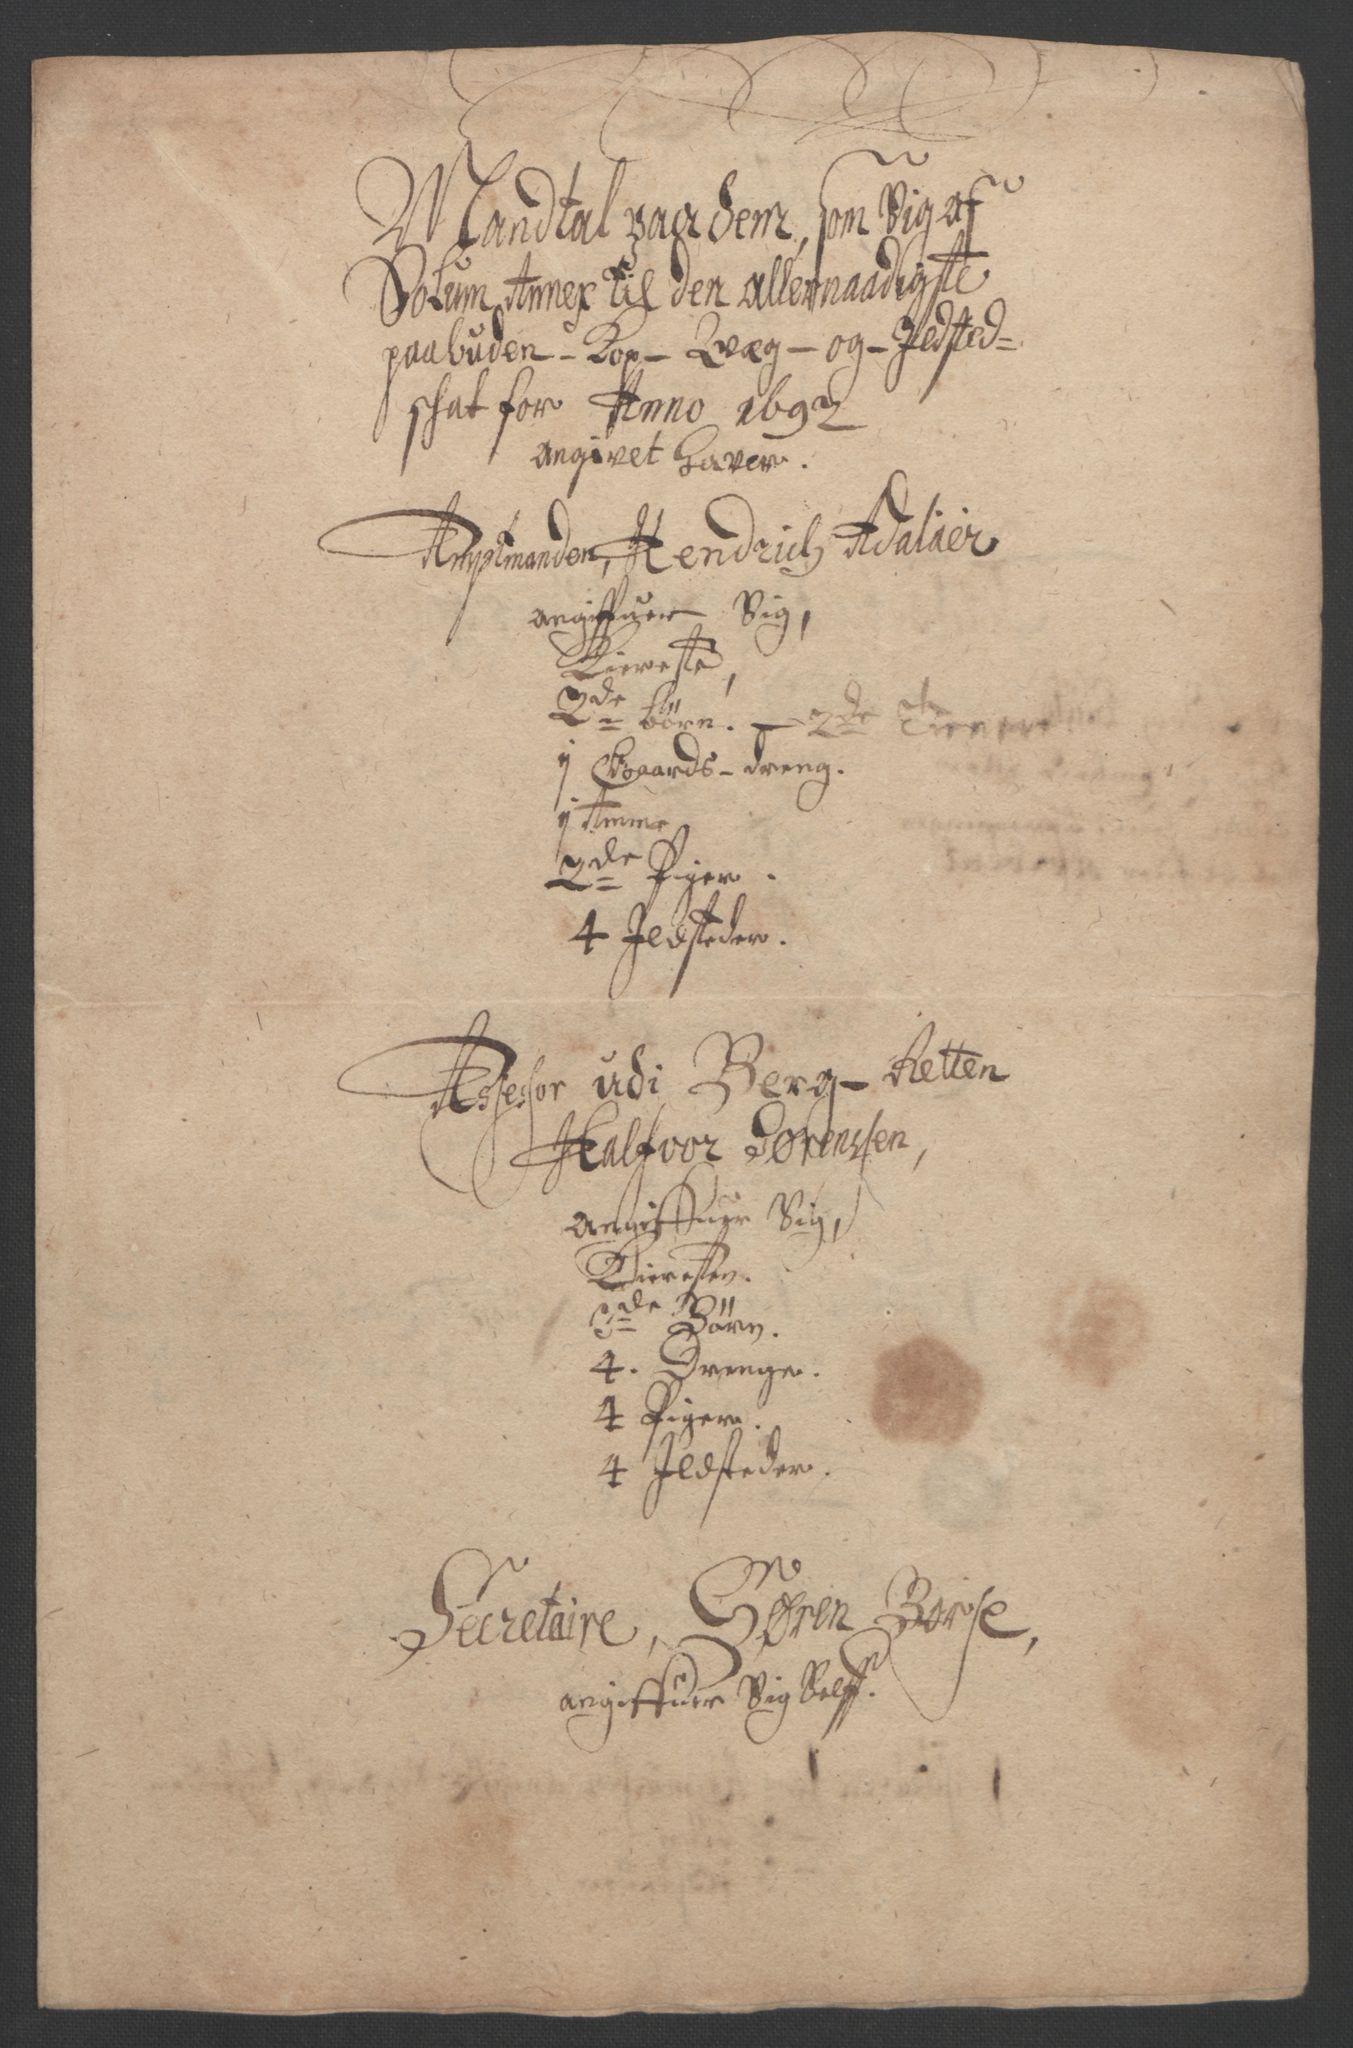 Mandtal paa dem, som Sig af
Solum Annex til den allernaadigste
paabuden - Kop - Qvæg - og - Ildsted=
schat for Anno 1692
angivet haver.
Amptmanden, Hendrich Adalaer
angiffuer Sig,
Kiereste,
2de börn. — 2de Tienere
1 Gaards-dreng.
1 Amme
2de Piger.
4 Ildsteder.
Assessor udi Berg-Retten
Halfvor Sørenssen,
angiffuer Sig,
Kieresten.
3de Börn.
4. Drenge.
4 Piger.
4 Ildsteder.
Secretaire, Søren Borse,
angiffuer Sig Self.